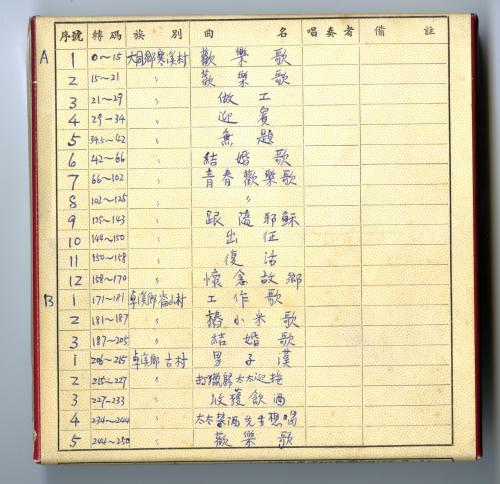 序號 轉碼 族別 曲名 唱奏者 備註
A 1 0~15 大同鄉寒溪村 歡樂歌
2 15~21 〃 歡樂歌
3 21~29 〃 做工
4 29-34 〃 迎賓
5 34.5~42 〃 無題
6 42~66 〃 結婚歌
7 66~102 〃 青春歡樂歌
8 102~125 〃 〃
9 125~143 〃 跟隨耶穌
10 144~150 〃 出征
11 150~158 〃 復活
12 158~170 〃 懷念故鄉
B 1 171~181 卓溪鄉崙山村 工作歌
2 181~187 〃 樁小米歌
3 187~205 〃 結婚歌
1 206~215 卓溪鄉古村 男子漢
2 215~227 〃 出獵歸太太迎接
3 227-233 〃 收穫飲酒
4 234~244 〃 太太禁酒先生想喝
5 244~250 〃 歡樂歌